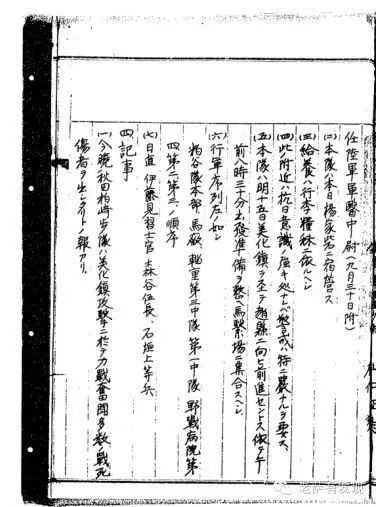 任陸軍軍醫中尉(九月三十日附)
(二)本隊ハ本日楊家砦ニ宿営ス
(三)給養ハ行李糧秣ニ依ルヘシ
(四)此附近ハ抗日意識强キ処ナレバ警戒ハ特ニ嚴ナルヲ要ス
(五)本隊ハ明十五日美化鎮ヲ 縣ニ向ヒ前進セントス依ツテ午
前八時三十分出發準備ヲ整ヘ馬繋場ニ集合スヘシ
(六)行軍序列左ノ如シ
粕谷隊本部、馬廠、輜重第三中隊 第一中隊 野戰病院第
四第二第三ノ順序
(七)日直 伊藤見習士官 森谷伍長、石垣上等兵
四記事
(一)今晩秋田柏崎步隊ハ美化鎮攻擊ニ於テ力戰奮闘多数ノ戰死
傷者ヲ出シタリトノ報アリ
老萨有发现